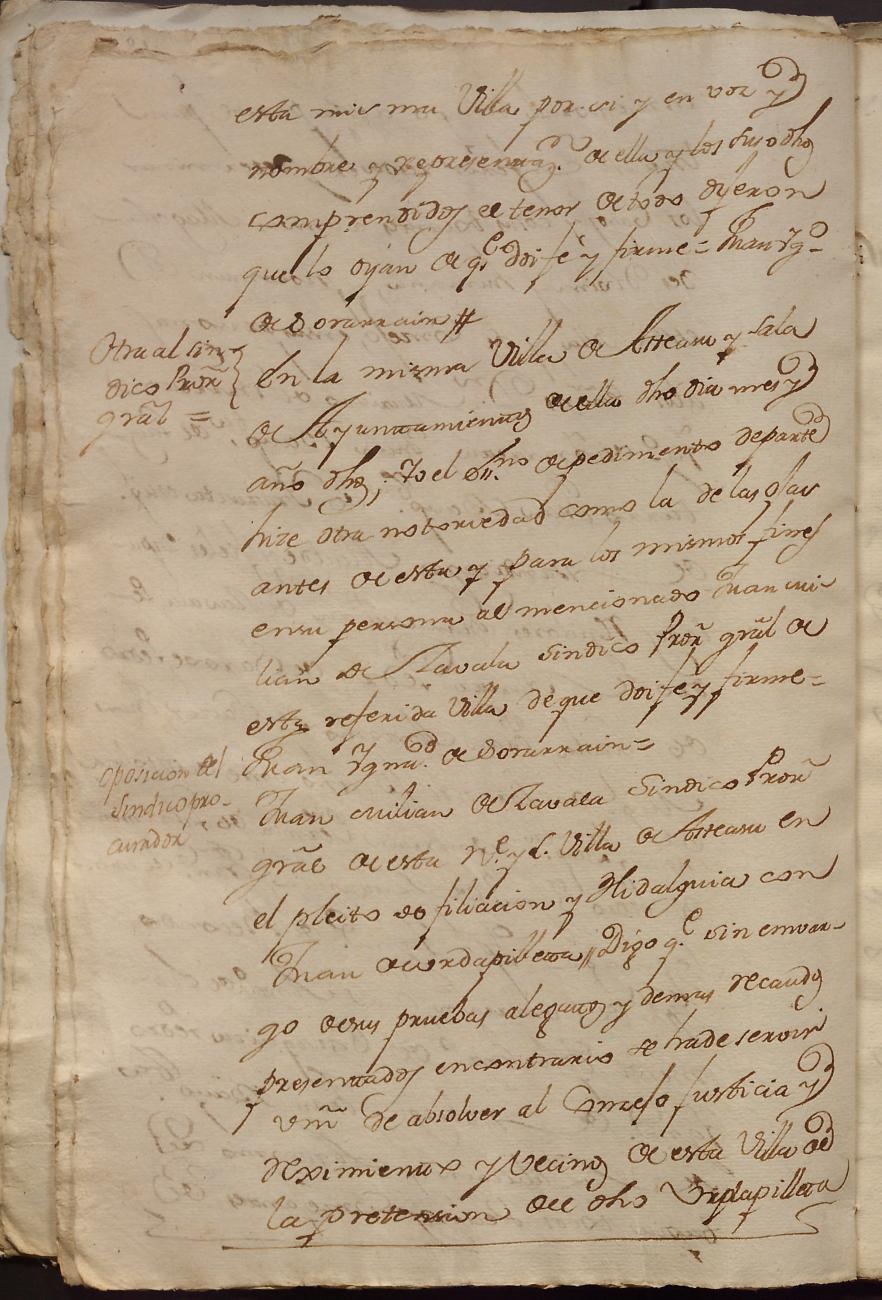 esta misma Villa por si y en voz y
nombre y representaz.n de ella y los suso dhos
comprendidos el tenor de todo dijeron
que lo oyan de q.e doi fé y firme = Juan Ygº
de Sorarrain #
Otra al sin
dico Pror
gral =
En la misma Villa de Asteasu y sala
de Ayuntamientos de ella dho dia mes y
año dhos, Yo el Ss.no de pedimento de parte
hize otra notoriedad como la de las olas
antes de esta y para los mismos fines
en su persona al mencionado Juan
de Zavala Sindico Pror gral de
esta referida Villa de que doi fé y firme =
Juan Ygna.º de Sorarrain =
oposicion del
Sindico pro-
curador
Juan de Zavala Sindico Pror
gral de esta N.e y L. Villa de Asteasu en
el pleito de filiacion y Hidalguia con
Juan de Urdapilleta // Digo q.e sin embar-
go de sus pruebas alegatos y demas recaudos
presentados en contrario se ha de servir
Vm de absolver al Concejo Justicia y
Reximiento y Vecinos de esta Villa de
la pretension del dho Urdapilleta